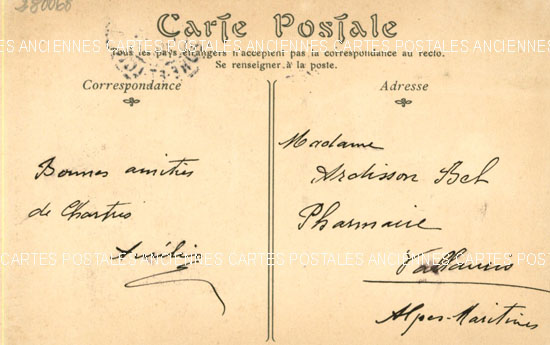 380068
Carte Postale
CARTES POSTALES ANCIENNES CARTES POSTALES ANCIENNES
Tous les pays étrangers n'acceptent pas la correspondance au recto.
Se renseigner à la poste.
Correspondance
Bonnes amitiés
de Chartres
Adresse
Madame
Ardisson Bel
Pharmacie
Vallauris
Alpes-Maritimes
CARTES POSTALES ANCIENNES CARTES POSTALES ANCIENNES